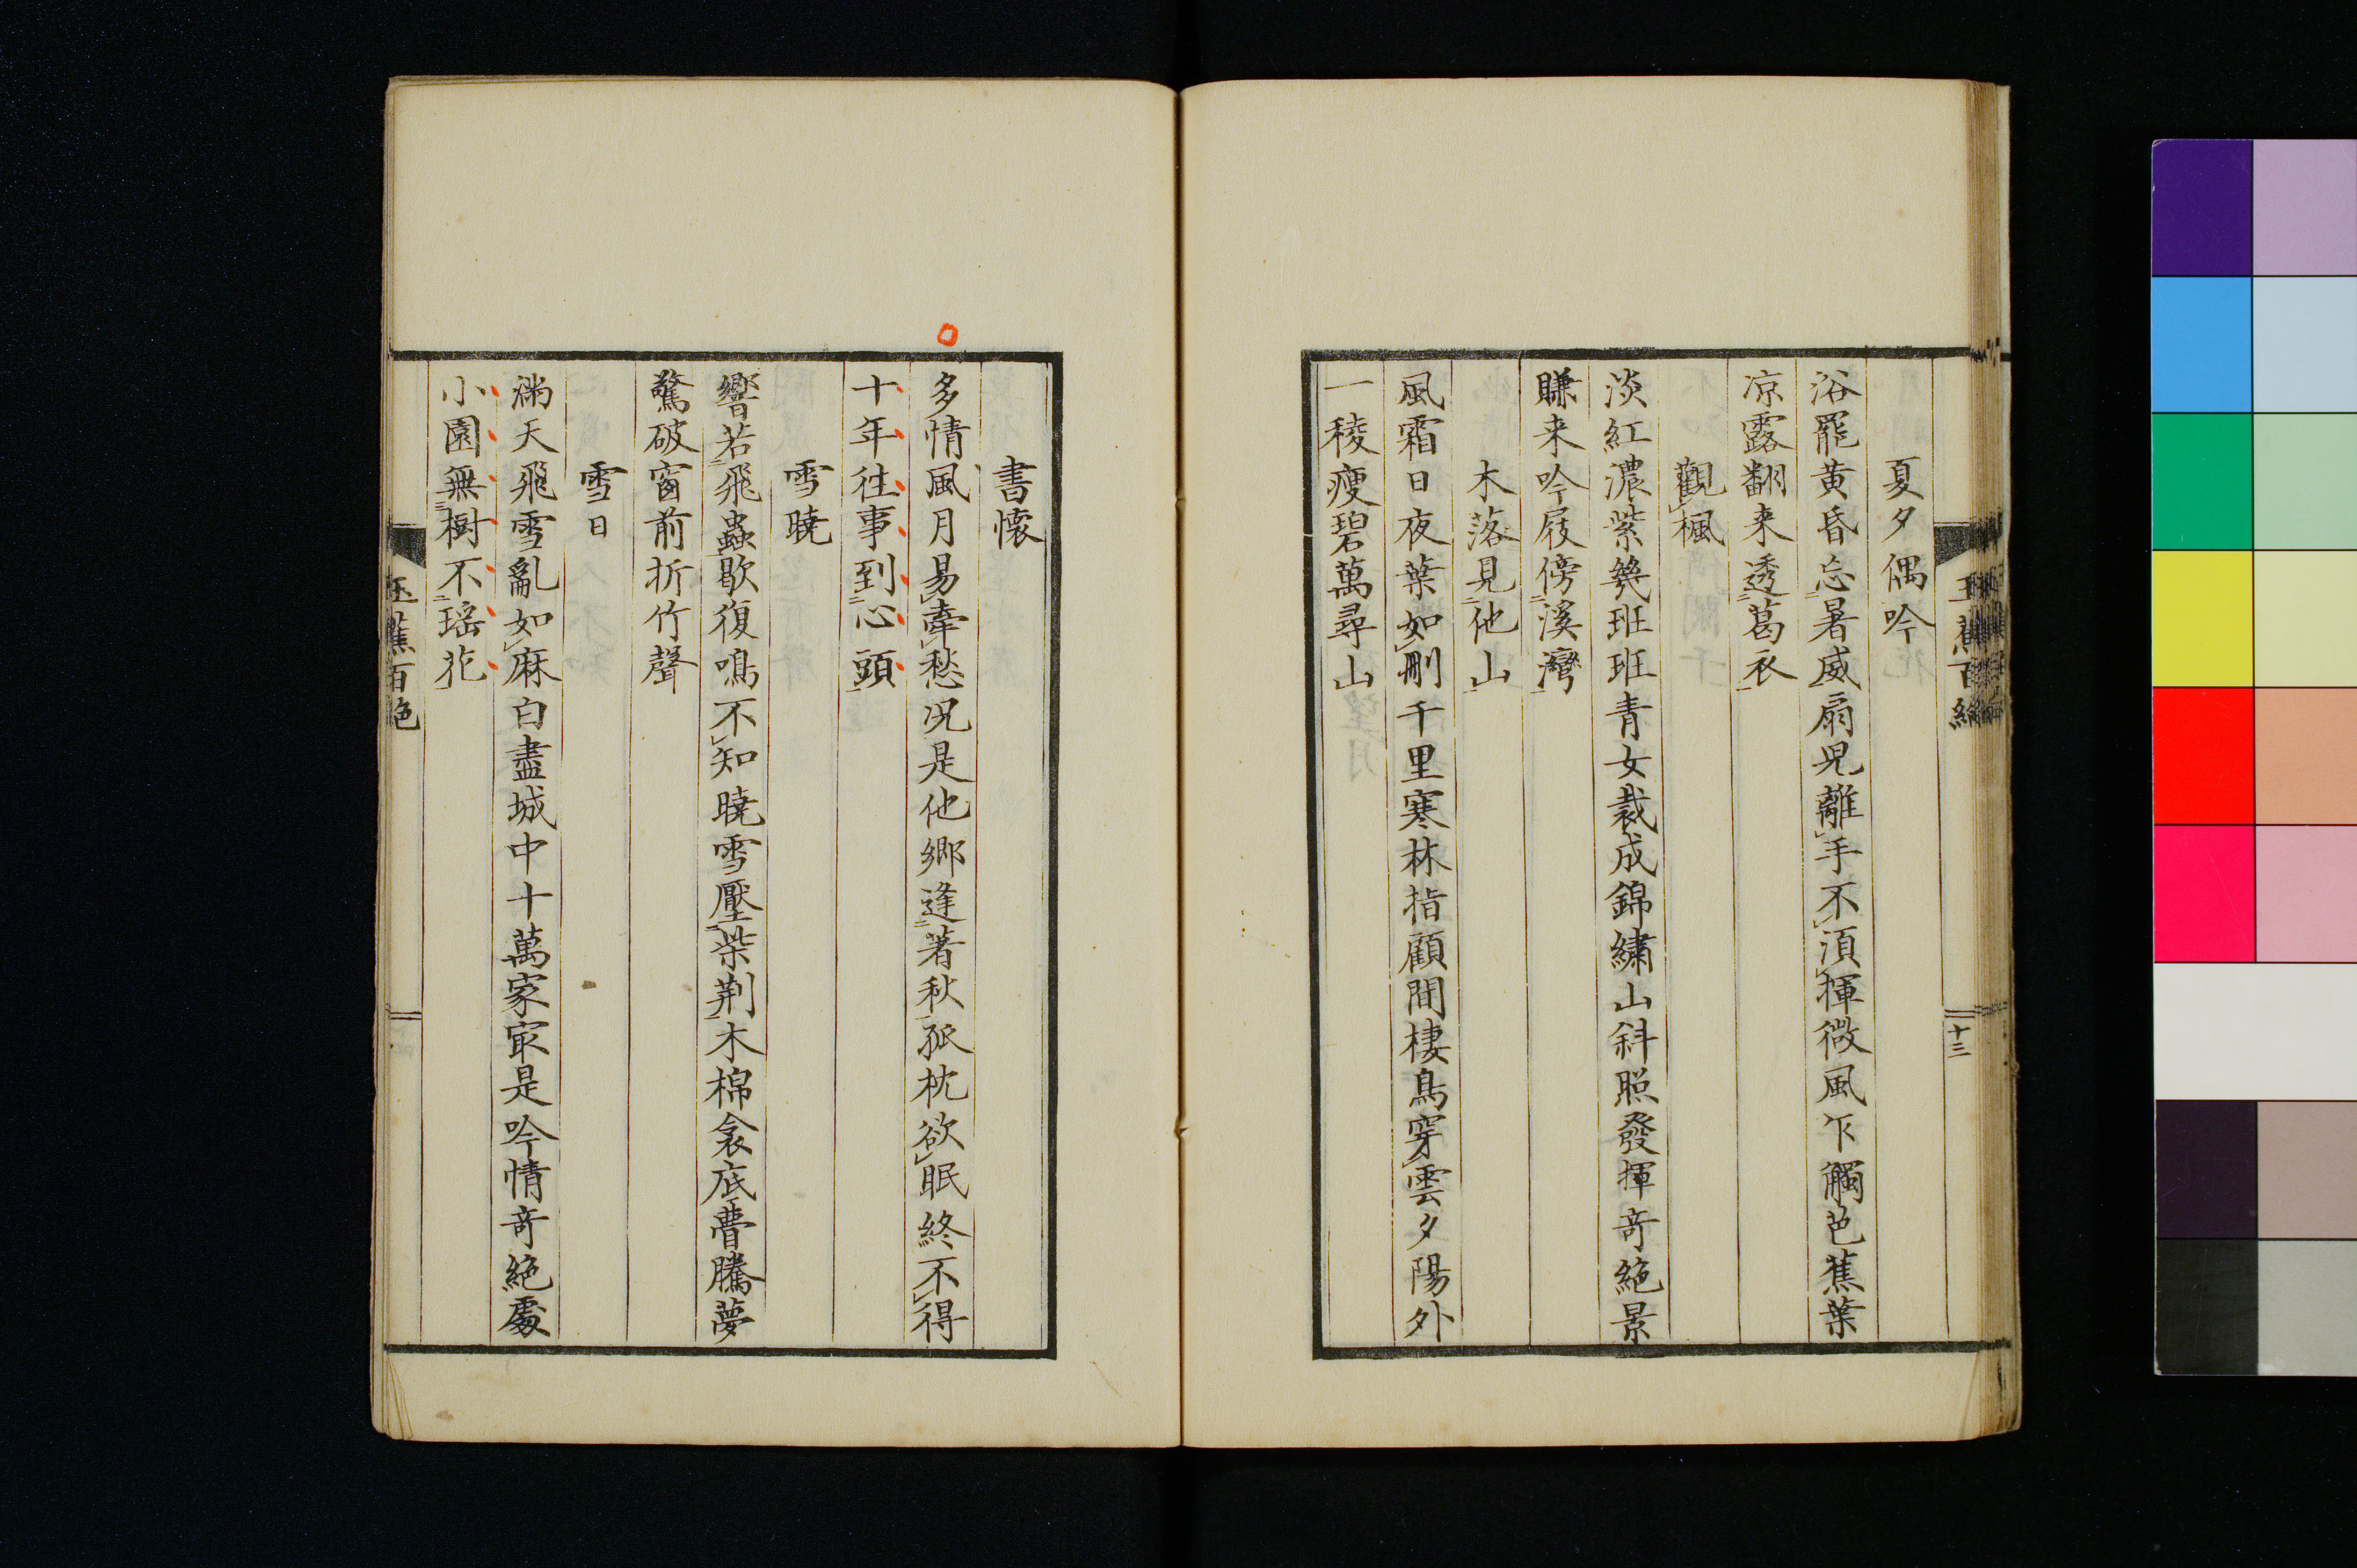 玉蕉百絶
十三
夏夕偶吟
浴罷黄昏忘暑威扇児離手不須揮微風乍觸芭蕉葉
凉露翻来透葛衣
觀楓
淡紅濃紫幾班班青女裁成錦繍山斜照發揮竒絶景
賺来吟屐傍溪灣
木落見他山
風霜日夜葉如刪千里寒林指顧間棲鳥穿雲夕陽外
一稜瘦碧萬尋山
書懐
多情風月易牽愁况是他郷逢著秋孤枕欲眠終不得
十年往事到心頭
雪曉
響若飛蟲歇復鳴不知曉雪壓柴荆木棉衾底瞢騰夢
驚破窗前折竹聲
雪日
滿天飛雪亂如麻白盡城中十萬家最是吟情竒絶處
小園無樹不瑶花
玉蕉百絶